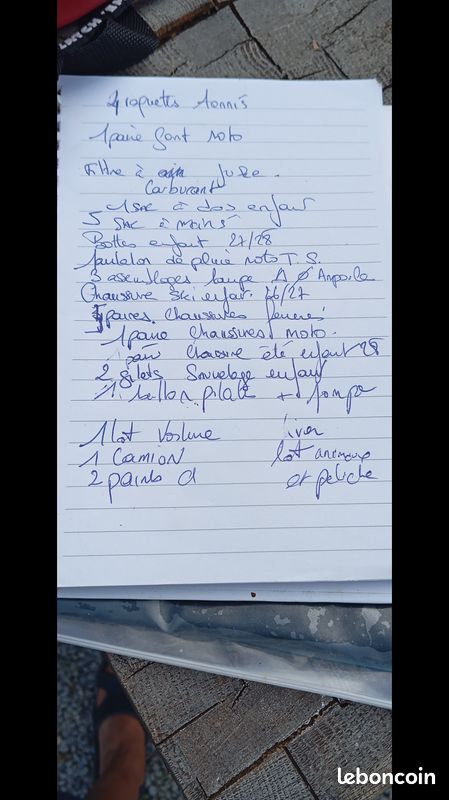 4 raquettes Tennis
1 paire Gant Moto
Filtre à
Carburant
1 Sac à dos enfant
5 Sac à mains
Bottes enfant 27/28
pantalon de pluie moto T.S.
3 assemblages lampe A Ø Ampoule
Chaussure Ski enfant 26/27
paires chaussures
1 paire chaussures moto.
1 paire chaussure été enfant 28
2 gilets Sauvetage enfant
1 ballon pilate + pompe
1 lot voiture livre
1 Camion lot animaux
2 et peluche
leboncoin